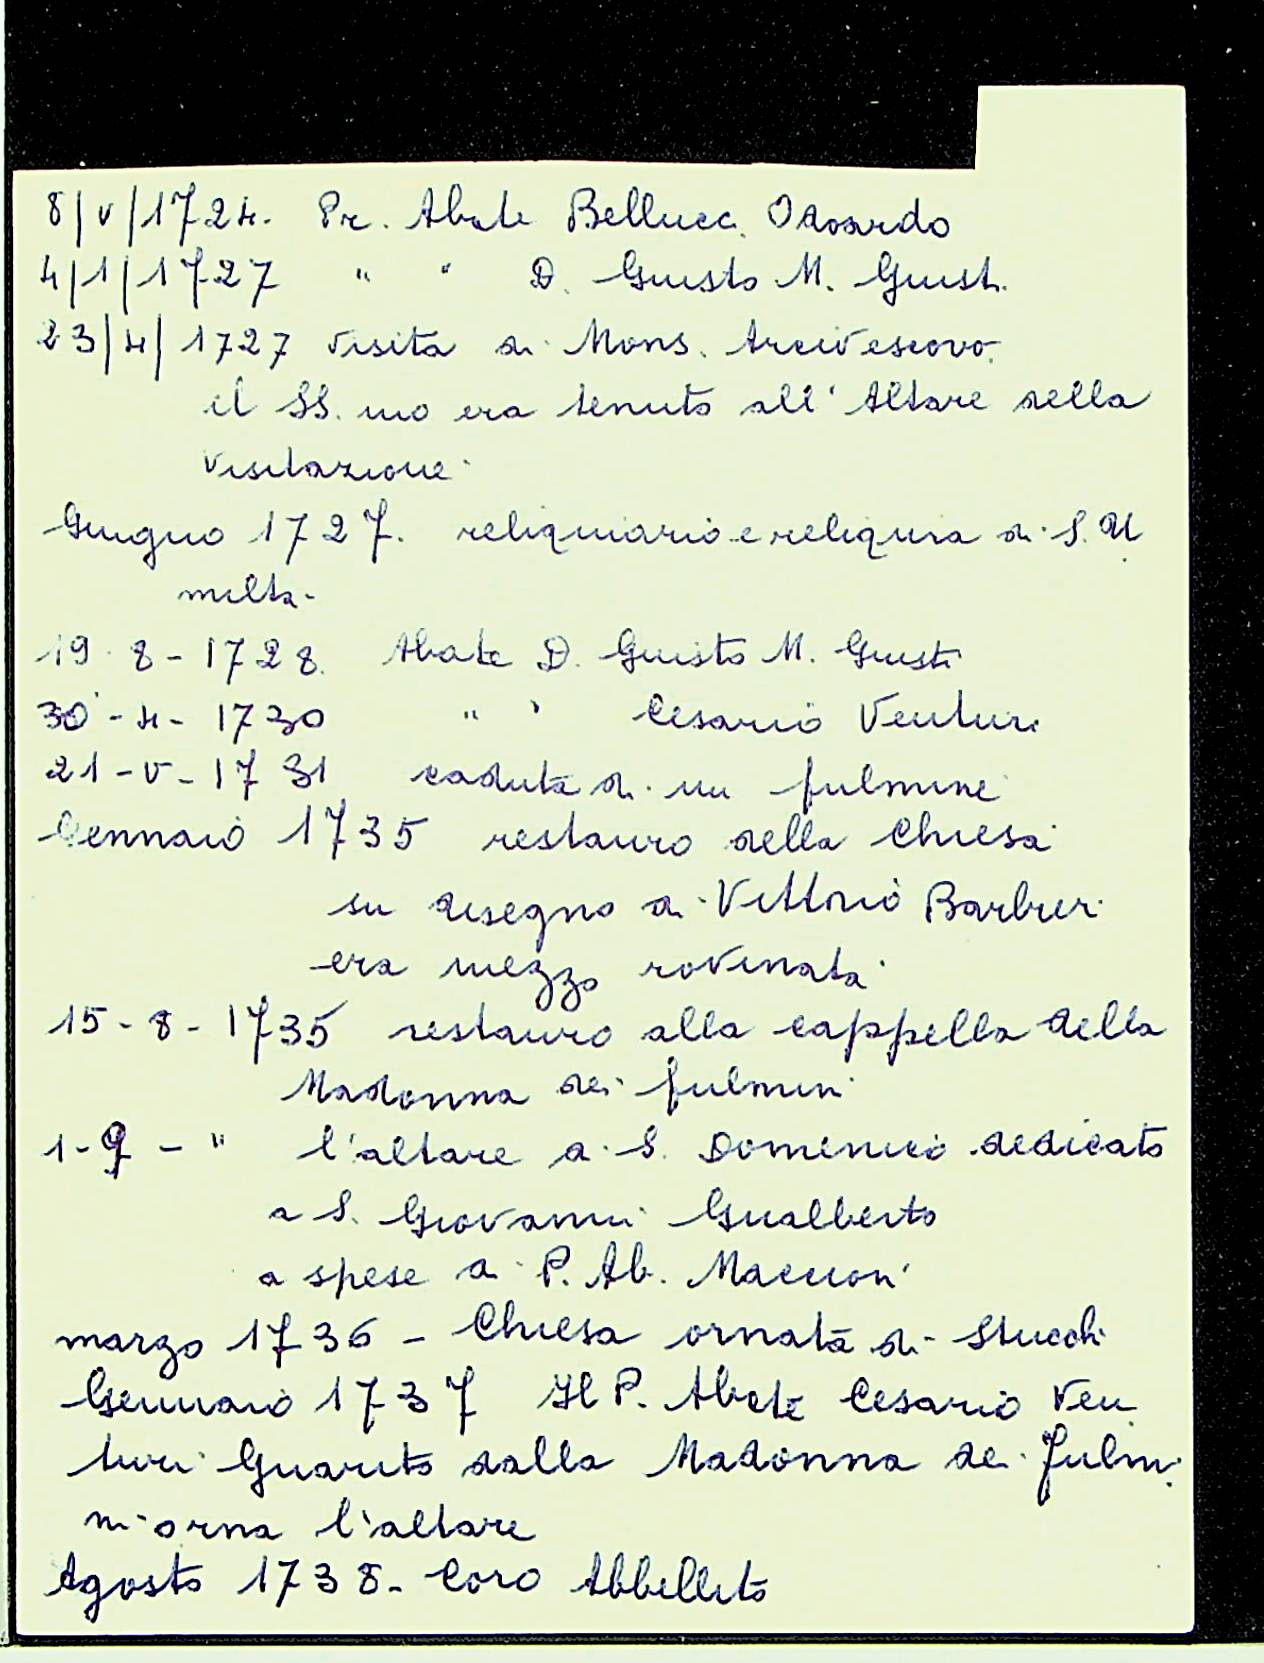 8/V/1724. Pr. Abate Bellucci Odoardo
4/1/1727 " " D. Giusto M. Giusti.
23/4/1727 visita di Mons. Arcivescovo.
il SS.mo era tenuto all'Altare della
Visitazione.
Giugno 1727. reliquiario e reliquia di S. U
miltà.
19-8-1728. Abate D. Giusto M. Giusti
30-4-1730 " " Cesario Venturi
21-V-1731 caduta di un fulmine
Gennaio 1735 restauro della Chiesa
su disegno di Vittorio Barbieri
era mezzo rovinata
15-8-1735 restauro alla cappella della
Madonna dei fulmini
1-9-" l'altare di S. Domenico dedicato
a S. Giovanni Gualberto
a spese di P. Ab. Maccioni
marzo 1736 - Chiesa ornata di Stucchi
Gennaio 1737 Il P. Abate Cesario Ven
turi Guarito dalla Madonna dei Fulmi
ni orna l'altare
Agosto 1738 - Coro Abbellito